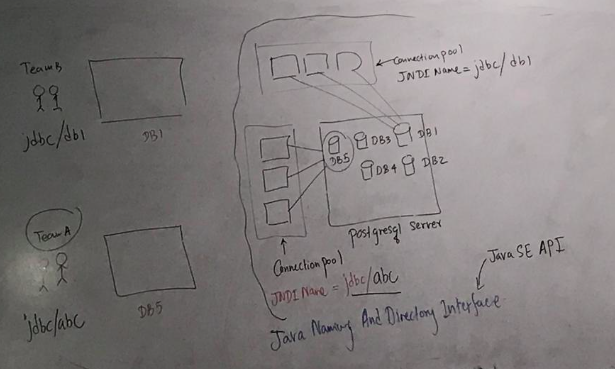 Team B
jdbc/db1
DB1
Connection pool
JNDI Name = jdbc/db1
DB5
DB3
DB1
DB4
DB2
postgresql server
Team A
jdbc/abc
DB5
Connection pool
JNDI Name = jdbc/abc
Java SE API
Java Naming And Directory Interface